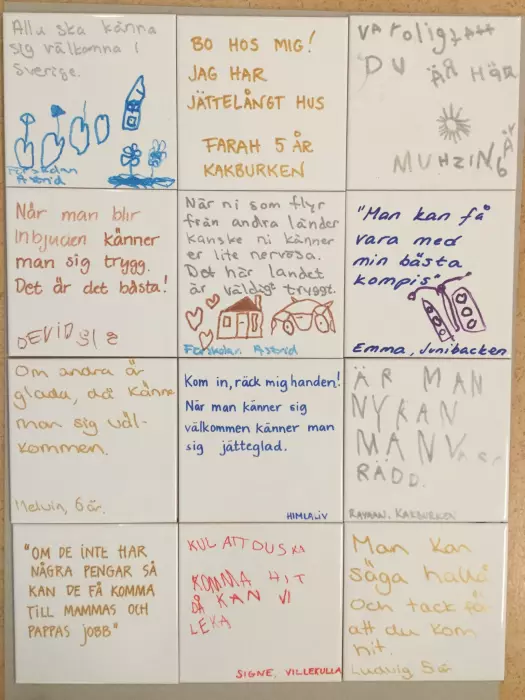 Alla ska känna
sig välkomna i
Sverige.
Förskolan
Astrid
BO HOS MIG!
JAG HAR
JÄTTELÅNGT HUS
FARAH 5 ÅR
KAKBURKEN
VA roligt ATT
DU ÄR HÄR
MUHZIN 6 ÅR
När man blir
Inbjuden känner
man sig trygg.
Det är det bästa!
DEVID
När ni som flyr
från andra länder
kanske ni känner
er lite nervosa.
Det här landet
är väldigt tryggt.
Förskolan Astrid
"Man kan få
vara med
min bästa
kompis"
Emma, Junibacken
Om andra är
glada, då känner
man sig väl-
kommen.
Melvin, 6 år.
Kom in, räck mig handen!
När man känner sig
välkommen känner man
sig jätteglad.
HIMLALIV
ÄR MAN
NY KAN
MAN VARA
RÄDD.
RAYAAN, KAKBURKEN
"OM DE INTE HAR
NÅGRA PENGAR SÅ
KAN DE FÅ KOMMA
TILL MAMMAS OCH
PAPPAS JOBB"
KUL ATT DU SKA
KOMMA HIT
DÅ KAN VI
LEKA
SIGNE, VILLEKULLA
Man kan
säga hallå
och tack för
att du kom
hit.
Ludvig 5 år